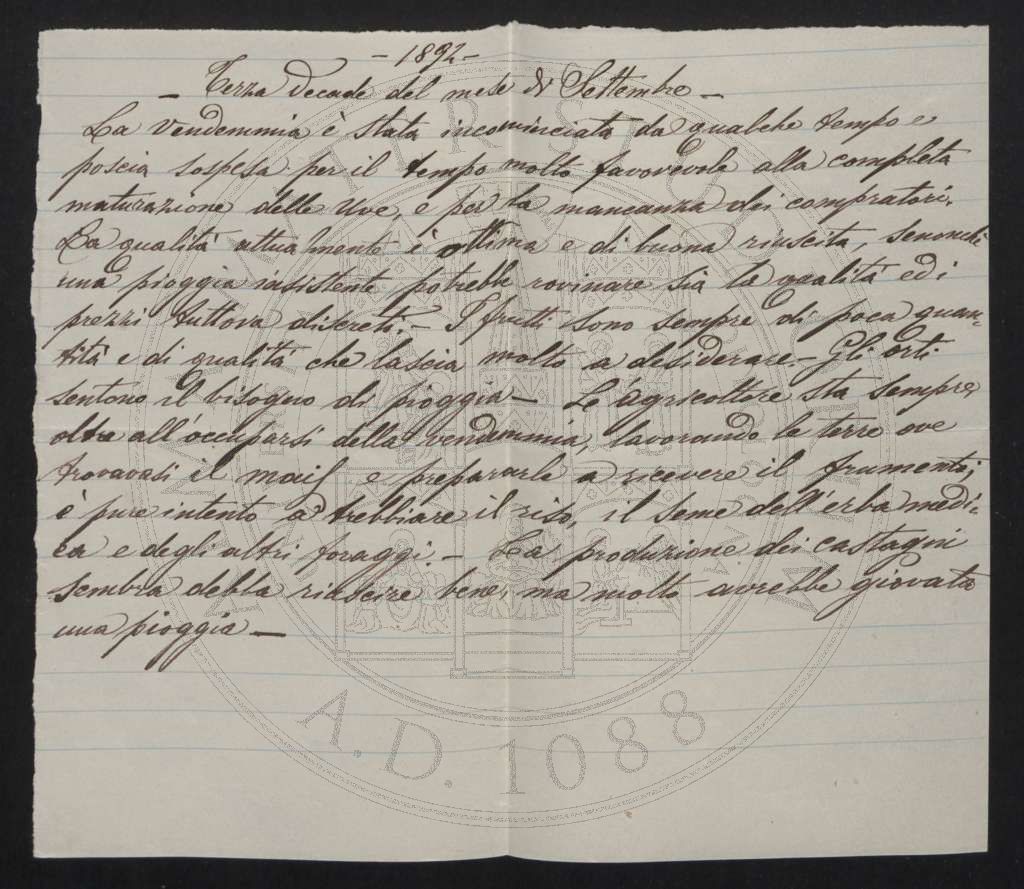 - 1892 -
- Terza Decade del mese di Settembre -
La Vendemmia è stata incominciata da qualche tempo e
poscia sospesa per il tempo molto favorevole alla completa
maturazione delle Uve, e per la mancanza dei compratori.
La qualità attualmente è ottima e di buona riuscita, senonchè
una pioggia insistente potrebbe rovinare sia la qualità ed i
prezzi tuttora discreti. - I frutti sono sempre di poca quan-
tità e di qualità che lascia molto a desiderare. - Gli orti
sentono il bisogno di pioggia - L'agricoltore sta sempre,
oltre all'occuparsi della vendemmia, lavorando le terre ove
trovavasi il mais e prepararle a ricevere il frumento;
è pure intento a trebbiare il riso, il seme dell'erba medi-
ca e degli altri foraggi. - La produzione dei castagni
sembra debba riuscire bene, ma molto avrebbe giovato
una pioggia -
A.D. 1088